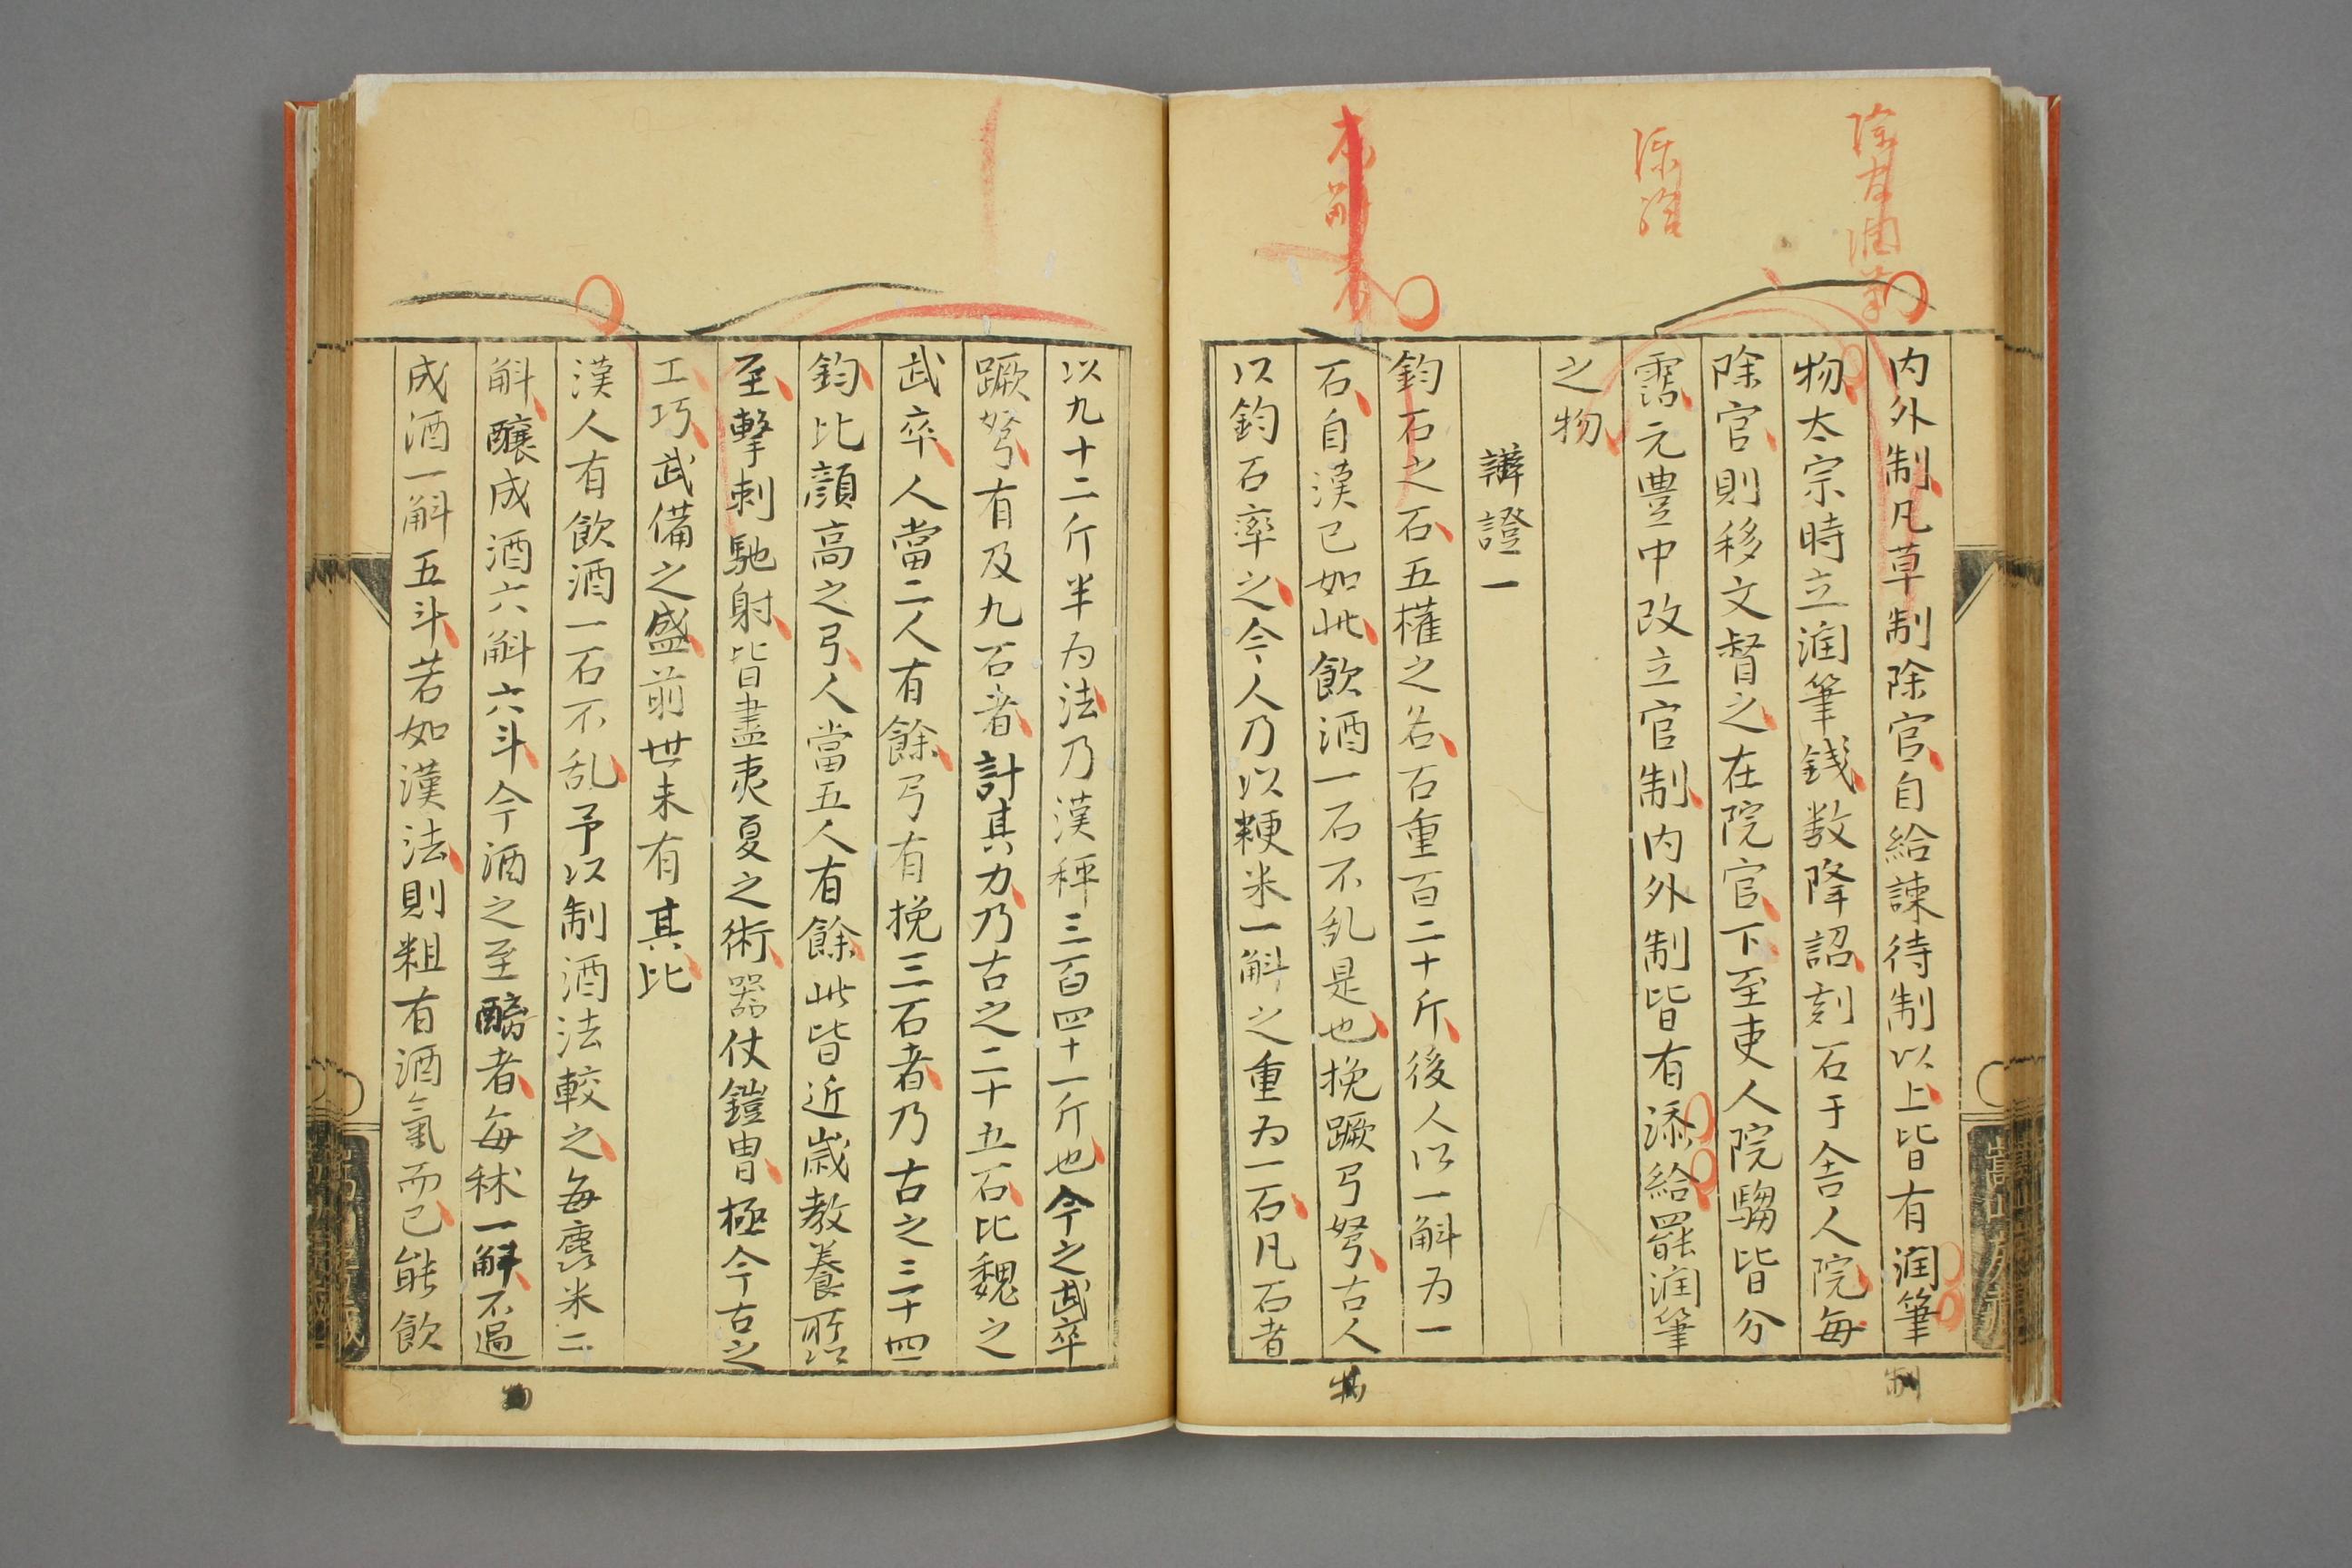 内外制凡草制除官自給諫待制以上皆有润筆
物太宗時立润筆錢数降詔刻石于舎人院每
除官則移文督之在院官下至吏人院騶皆分
霑元豊中改立官制内外制皆有添給罷润筆
之物
辯證一
鈞石之石五權之名石重百二十斤後人以一斛为一
石自漢已如此飲酒一石不乱是也挽蹶弓弩古人
以鈞石率之今人乃以粳米一斛之重为一石凡石者
以九十二斤半为法乃漢秤三百四十一斤也今之武卒
蹶弩有及九石者計其力乃古之二十五石比魏之
武卒人當二人有餘弓有挽三石者乃古之三十四
鈞比顔高之弓人當五人有餘此皆近歳教養所以
至擊刺馳射皆盡夷夏之術器仗鎧胄極今古之
工巧武備之盛前世未有其比
漢人有飲酒一石不乱予以制酒法較之每麤米二
斛釀成酒六斛六斗今酒之至醨者每秫一斛不過
成酒一斛五斗若如漢法則粗有酒氣而已能飲